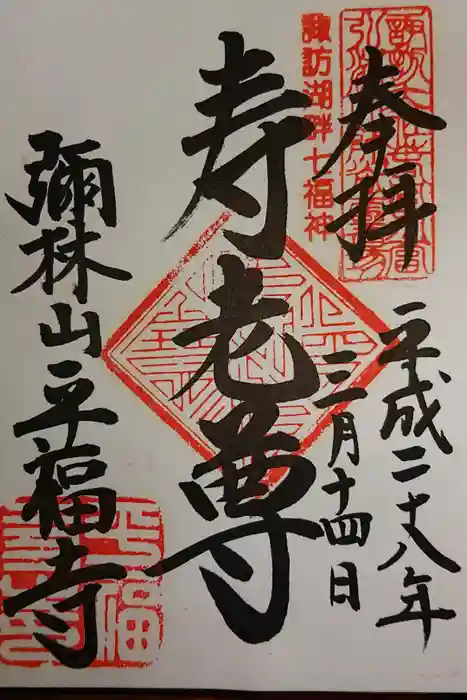 奉拝
諏訪湖畔七福神
平成二十八年
三月十四日
寿老尊
彌林山平福寺
平福寺印